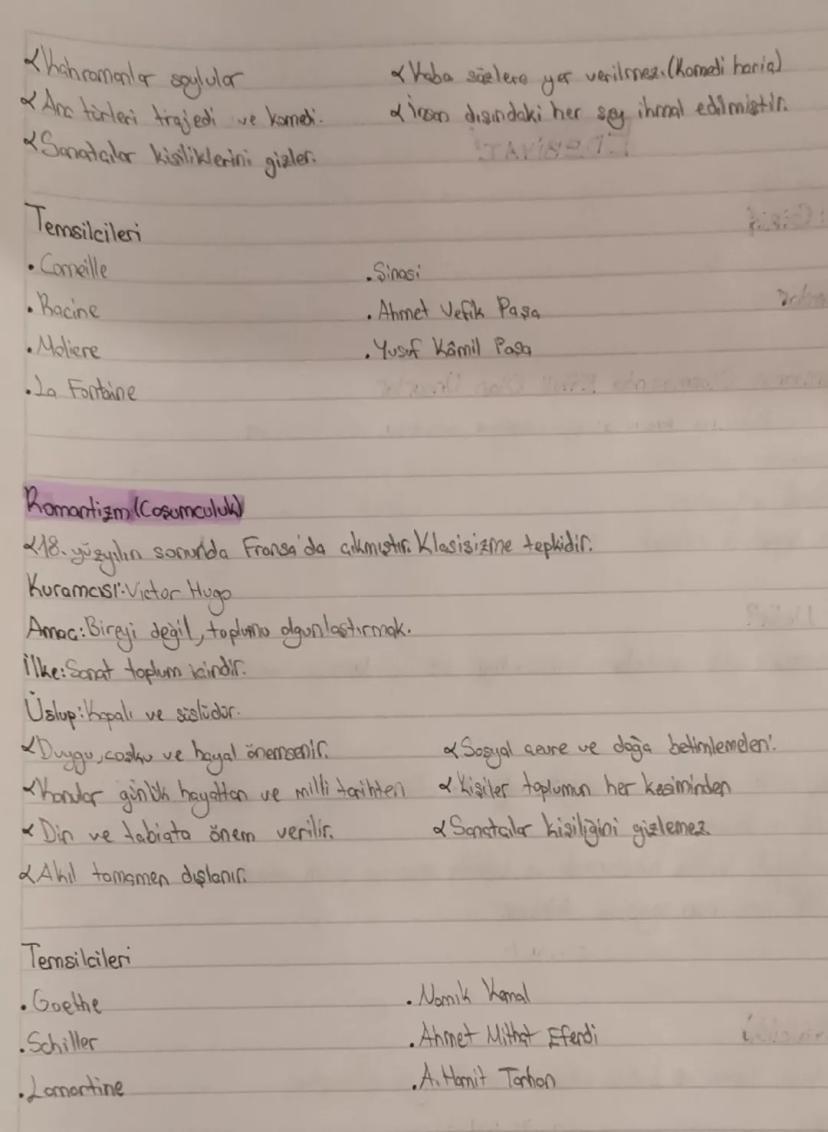 ∝ Kahramanlar soylular
∝ Kaba sözlere yer verilmez. (Komedi hariç)
∝ Ana türleri trajedi ve komedi.
∝ İnsan dışındaki her şey ihmal edilmiştir.
∝ Sanatçılar kişiliklerini gizler.
Temsilcileri
• Corneille
• Şinasi
• Racine
• Ahmet Vefik Paşa
• Moliere
• Yusuf Kâmil Paşa
• La Fontaine
Romantizm (Coşumculuk)
∝ 18. yüzyılın sonunda Fransa'da çıkmıştır. Klasisizme tepkidir.
Kuramcısı: Victor Hugo
Amaç: Bireyi değil, toplumu olgunlaştırmak.
İlke: Sanat toplum içindir.
Üslup: Kapalı ve süslüdür.
∝ Duygu, coşku ve hayal önemsenir.
∝ Sosyal çevre ve doğa betimlemeleri.
∝ Konular günlük hayattan ve milli tarihten
∝ Kişiler toplumun her kesiminden
∝ Din ve tabiata önem verilir.
∝ Sanatçılar kişiliğini gizlemez.
∝ Akıl tamamen dışlanır.
Temsilcileri
• Goethe
• Namık Kemal
• Schiller
• Ahmet Mithat Efendi
• Lamartine
• A. Hamit Tarhan